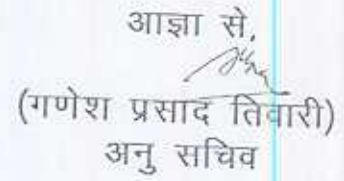 आज्ञा से,
(गणेश प्रसाद तिवारी)
अनु सचिव